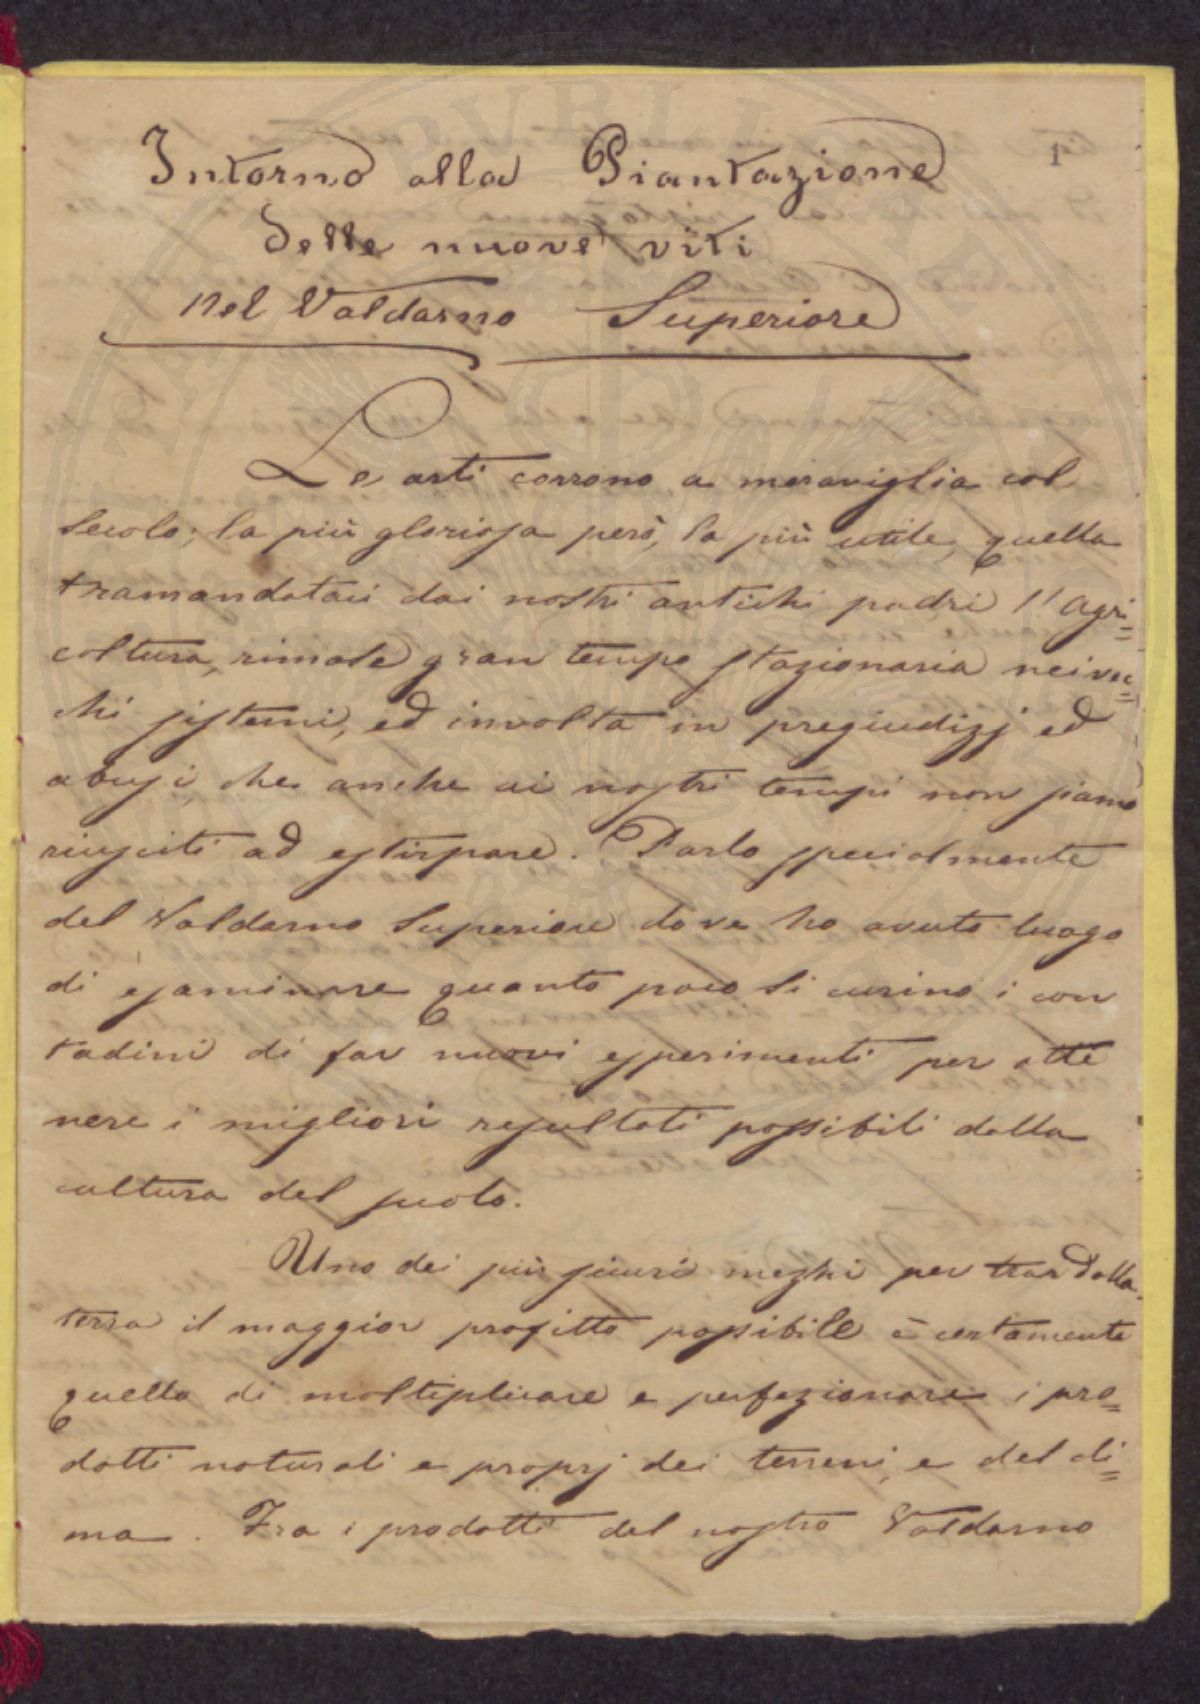 1
Intorno alla Piantazione
delle nuove viti
nel Valdarno Superiore
Le arti corrono a meraviglia col
secolo; la più gloriosa però, la più utile, quella
tramandataci dai nostri antichi padri l'agri=
coltura, rimase gran tempo stazionaria nei vec=
chi sistemi, ed involta in pregiudizj ed
abusi, che anche ai nostri tempi non siamo
riusciti ad estirpare. Parlo specialmente
del Valdarno Superiore dove ho avuto luogo
di esaminare quanto poco si curino i con
tadini di far nuovi esperimenti per otte
nere i migliori resultati possibili dalla
cultura del suolo.
Uno dei più sicuri mezhi per trar dalla
terra il maggior profitto possibile è certamente
quello di moltiplicare e perfezionare i pro=
dotti naturali e proprj dei terreni, e del cli=
ma. Fra i prodotti del nostro Valdarno